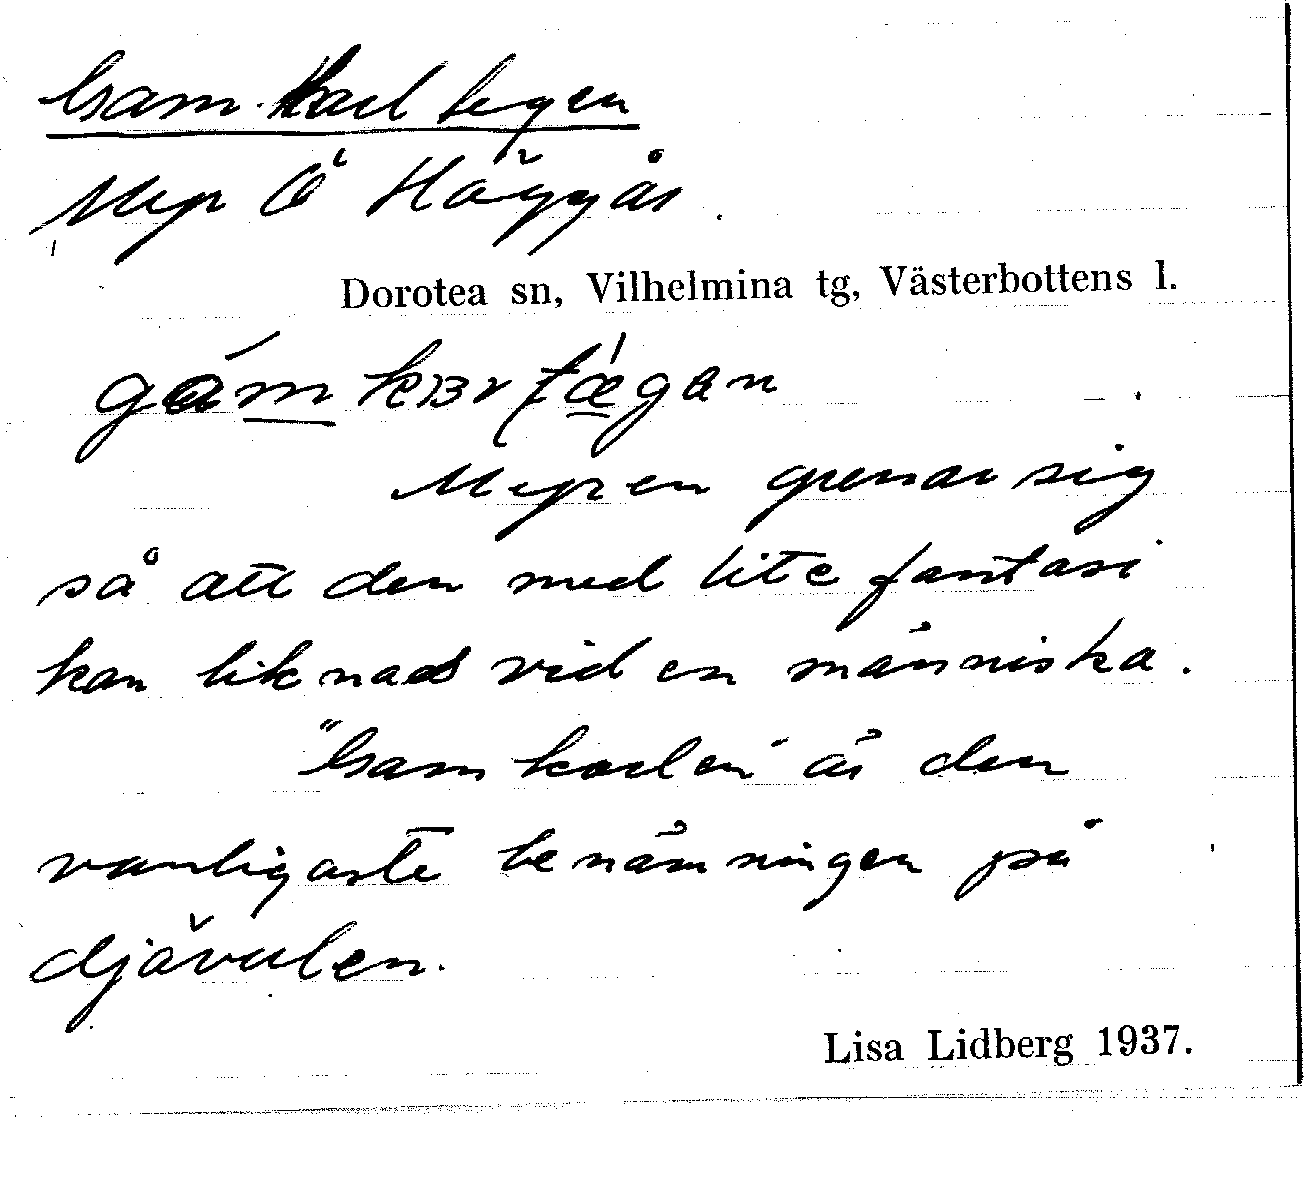 Gam-Karltegen
Myr Ö Häggås.
Dorotea sn, Vilhelmina tg, Västerbottens l.
Myren grenar sig
så att den med lite fantasi
kan liknas vid en människa.
"Gamkarlen" är den
vanligaste benämningen på
djävulen.
Lisa Lidberg 1937.